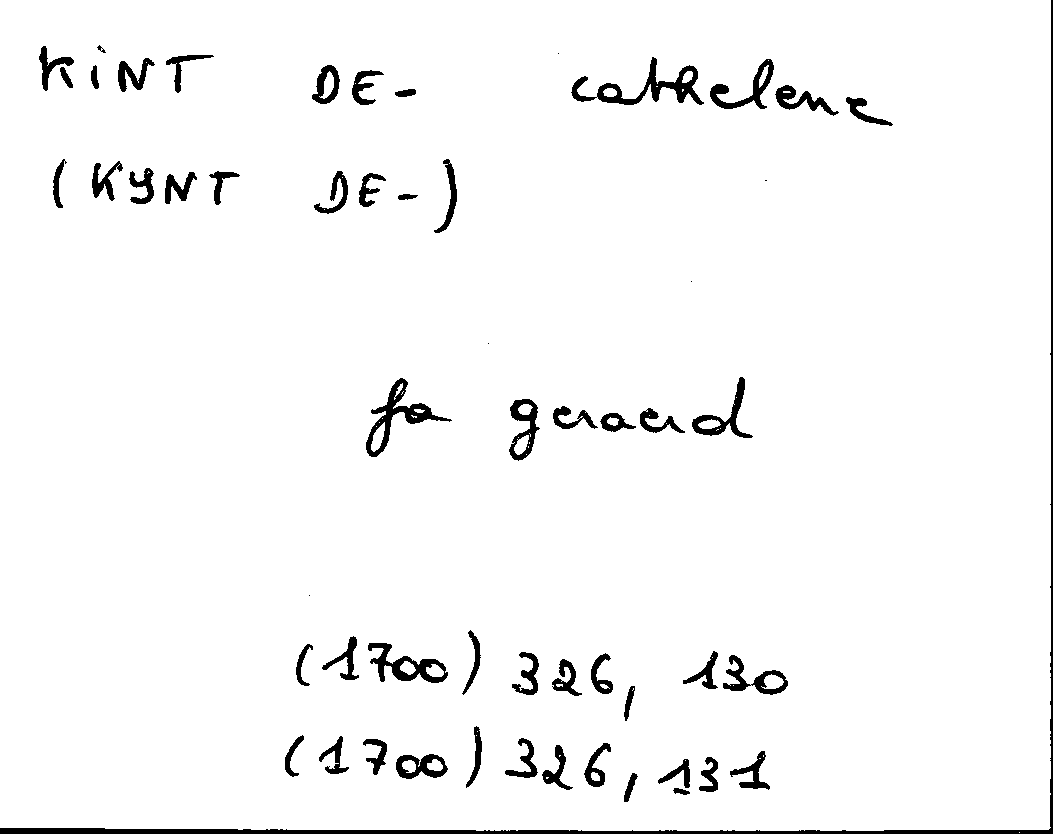 KiNT DE- cathelene
(KYNT DE-)
fa geraerd
(1700) 326, 130
(1700) 326, 131